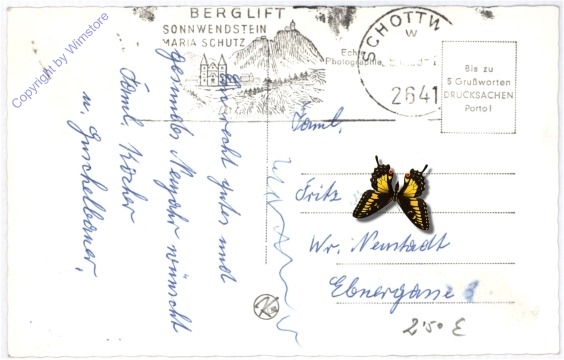 Copyright by Wimstore
BERGLIFT
SONNWENDSTEIN
MARIA SCHUTZ
SCHOTTW
W
2641
Echte
Photographie
Bis zu
5 Grußworten
DRUCKSACHEN
Porto!
Ein recht gutes und
gesundes Neujahr wünscht
Faml. Köcher
u.
Faml.
Fritz
Wr. Neustadt
Ebnergasse 8
2'50 €
K